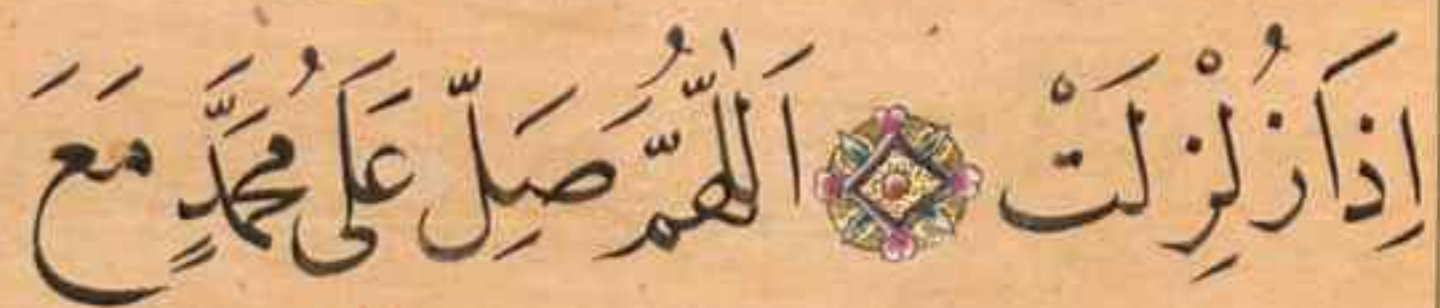 اِذَا زُلْزِلَتْ اَللّٰهُمَّ صَلِّ عَلَى مُحَمَّدٍ مَعَ